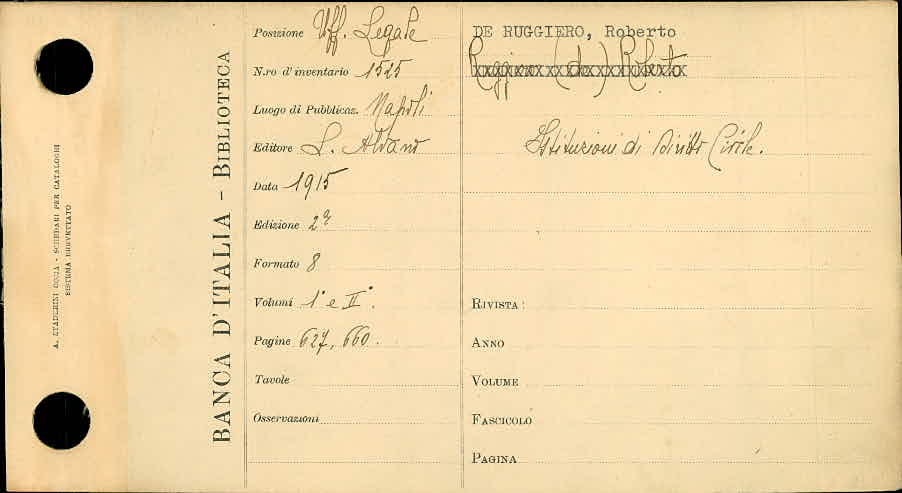 A. STADERINI DOCIA - SCHEDARI PER CATALOGHI
SISTEMA BREVETTATO
BANCA D'ITALIA - BIBLIOTECA
Posizione Uff. Legale
N.ro d'inventario 1525
Luogo di Pubblicaz. Napoli
Editore L. Alvano
Data 1915
Edizione 2ª
Formato 8
Volumi 1° e II°.
Pagine 627, 660.
Tavole
Osservazioni
DE RUGGIERO, Roberto
Ruggiero (de) Roberto
Istituzioni di Diritto Civile.
RIVISTA:
ANNO
VOLUME
FASCICOLO
PAGINA